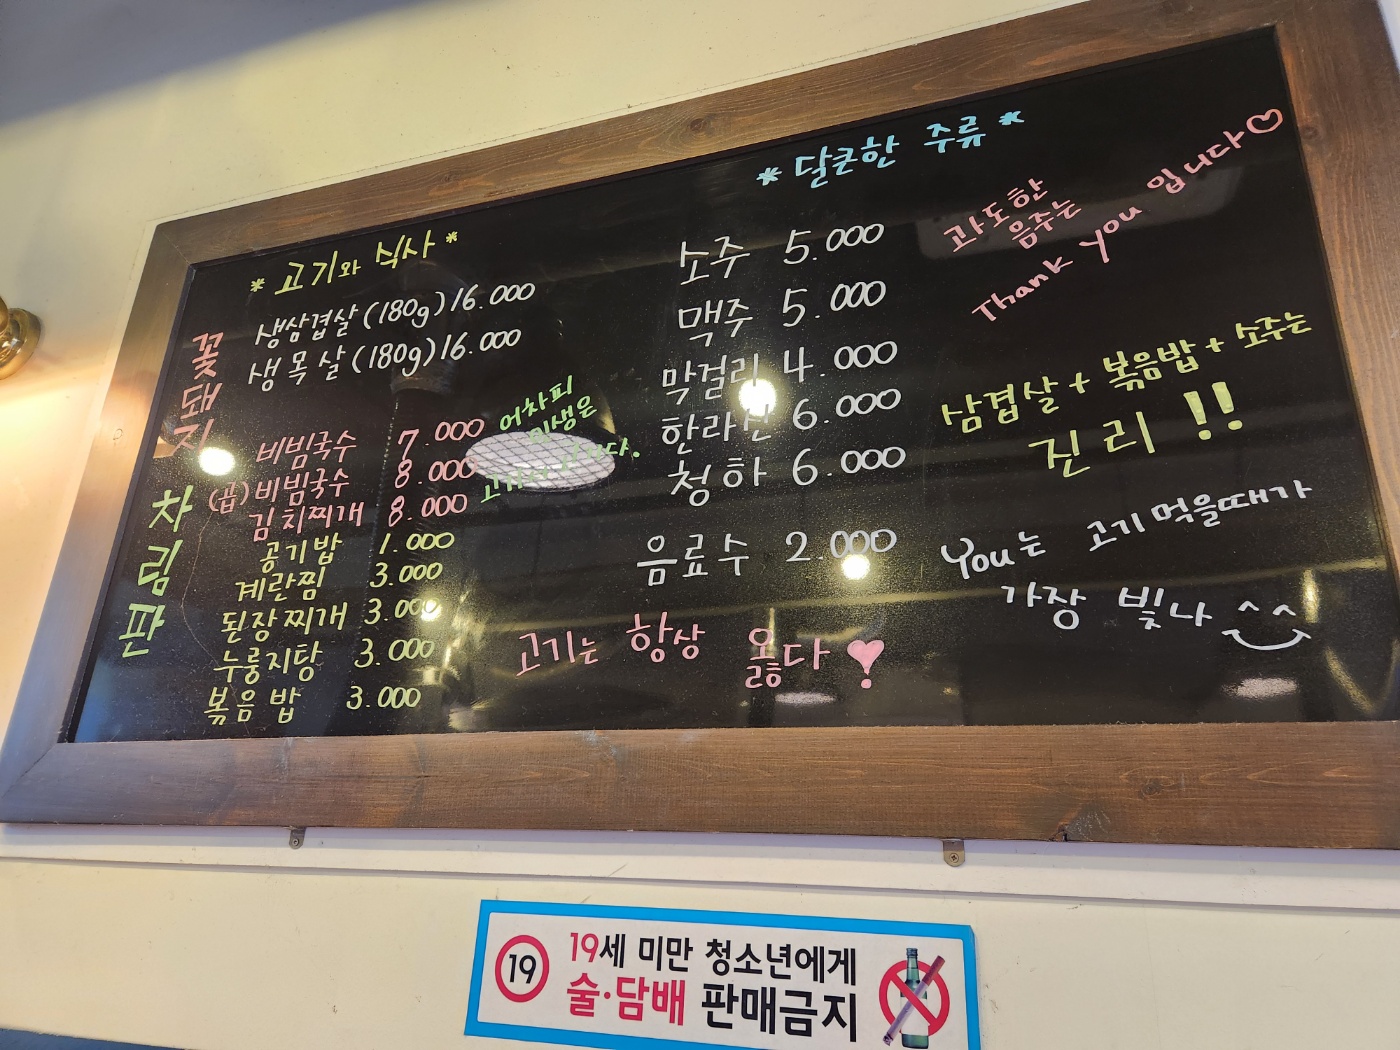 꽃돼지
차림판
* 고기와 식사 *
생삼겹살 (180g) 16.000
생목살 (180g) 16.000
비빔국수 7.000
(곱) 비빔국수 8.000
김치찌개 8.000
공기밥 1.000
계란찜 3.000
된장찌개 3.000
누룽지탕 3.000
볶음밥 3.000
어차피
인생은
* 달큰한 주류 *
소주 5.000
맥주 5.000
막걸리 4.000
한라산 6.000
청하 6.000
음료수 2.000
고기는 항상 옳다
과도한
음주는
Thank you 입니다♡
삼겹살 + 볶음밥 + 소주는
진리 !!
You는 고기 먹을때가
가장 빛나 ^^
19
19세 미만 청소년에게
술·담배 판매금지